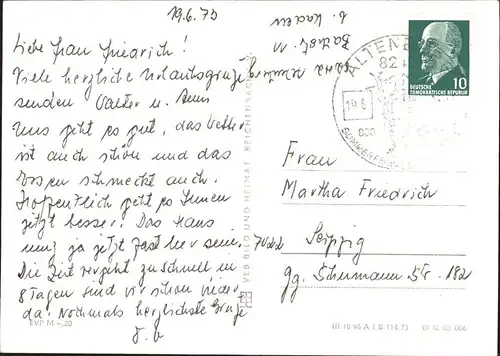 19.6.75
Liebe Frau Friedrich!
Viele herzliche Urlaubsgrüße
senden Walter u. Anni
Uns geht es gut, das Wetter
ist auch schön und das
Essen schmeckt auch.
Hoffentlich geht es Ihnen
jetzt besser. Das Haus
muß ja jetzt fast leer sein.
Die Zeit vergeht zu schnell in
8 Tagen sind wir schon wieder
da. Nochmals herzlichste Grüße
D. O.
EVP M -,20
VEB BILD UND HEIMAT REICHENBACH
ALTENB
82
19.6
DEUTSCHE
DEMOKRATISCHE REPUBLIK
10
Frau
Martha Friedrich
7022 Leipzig
gg. Schumann Str. 182
III 18 96 A 1 B 114,73 01 12 03 006